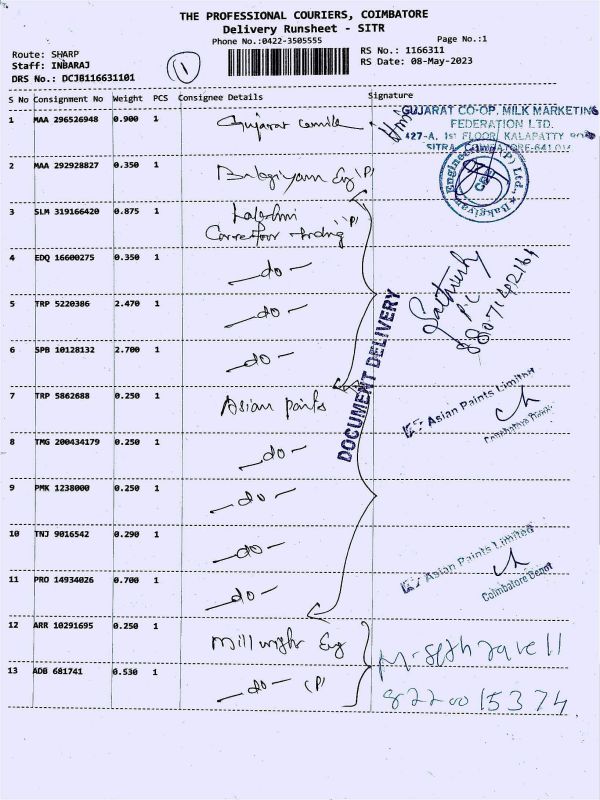 THE PROFESSIONAL COURIERS, COIMBATORE
Delivery Runsheet - SITR
Phone No.:0422-3505555
Page No.:1
Route: SHARP
Staff: INBARAJ
DRS No.: DCJB116631101
1
RS No.: 1166311
RS Date: 08-May-2023
S No Consignment No Weight PCS Consignee Details Signature
1 MAA 296526948 0.900 1 Gujarat
GUJARAT CO-OP. MILK MARKETING
FEDERATION LTD.
427-A, 1st FLOOR, KALAPATTY ROAD
SITRA, COIMBATORE-641014
2 MAA 292928827 0.350 1
3 SLM 319166420 0.875 1 Lakshmi
4 EDQ 16600275 0.350 1 -do-
5 TRP 5220386 2.470 1 -do-
6 SPB 10128132 2.700 1 -do-
8807142161
DOCUMENT DELIVERY
7 TRP 5862688 0.250 1 Asian paints
Asian Paints Limited
Coimbatore Depot
8 TMG 200434179 0.250 1 -do-
9 PMK 1238000 0.250 1 -do-
10 TNJ 9016542 0.290 1 -do-
Asian Paints Limited
Coimbatore Depot
11 PRO 14934026 0.700 1 -do-
12 ARR 10291695 0.250 1 Millwright Eng
13 ADB 681741 0.530 1 -do- (P)
8220015374